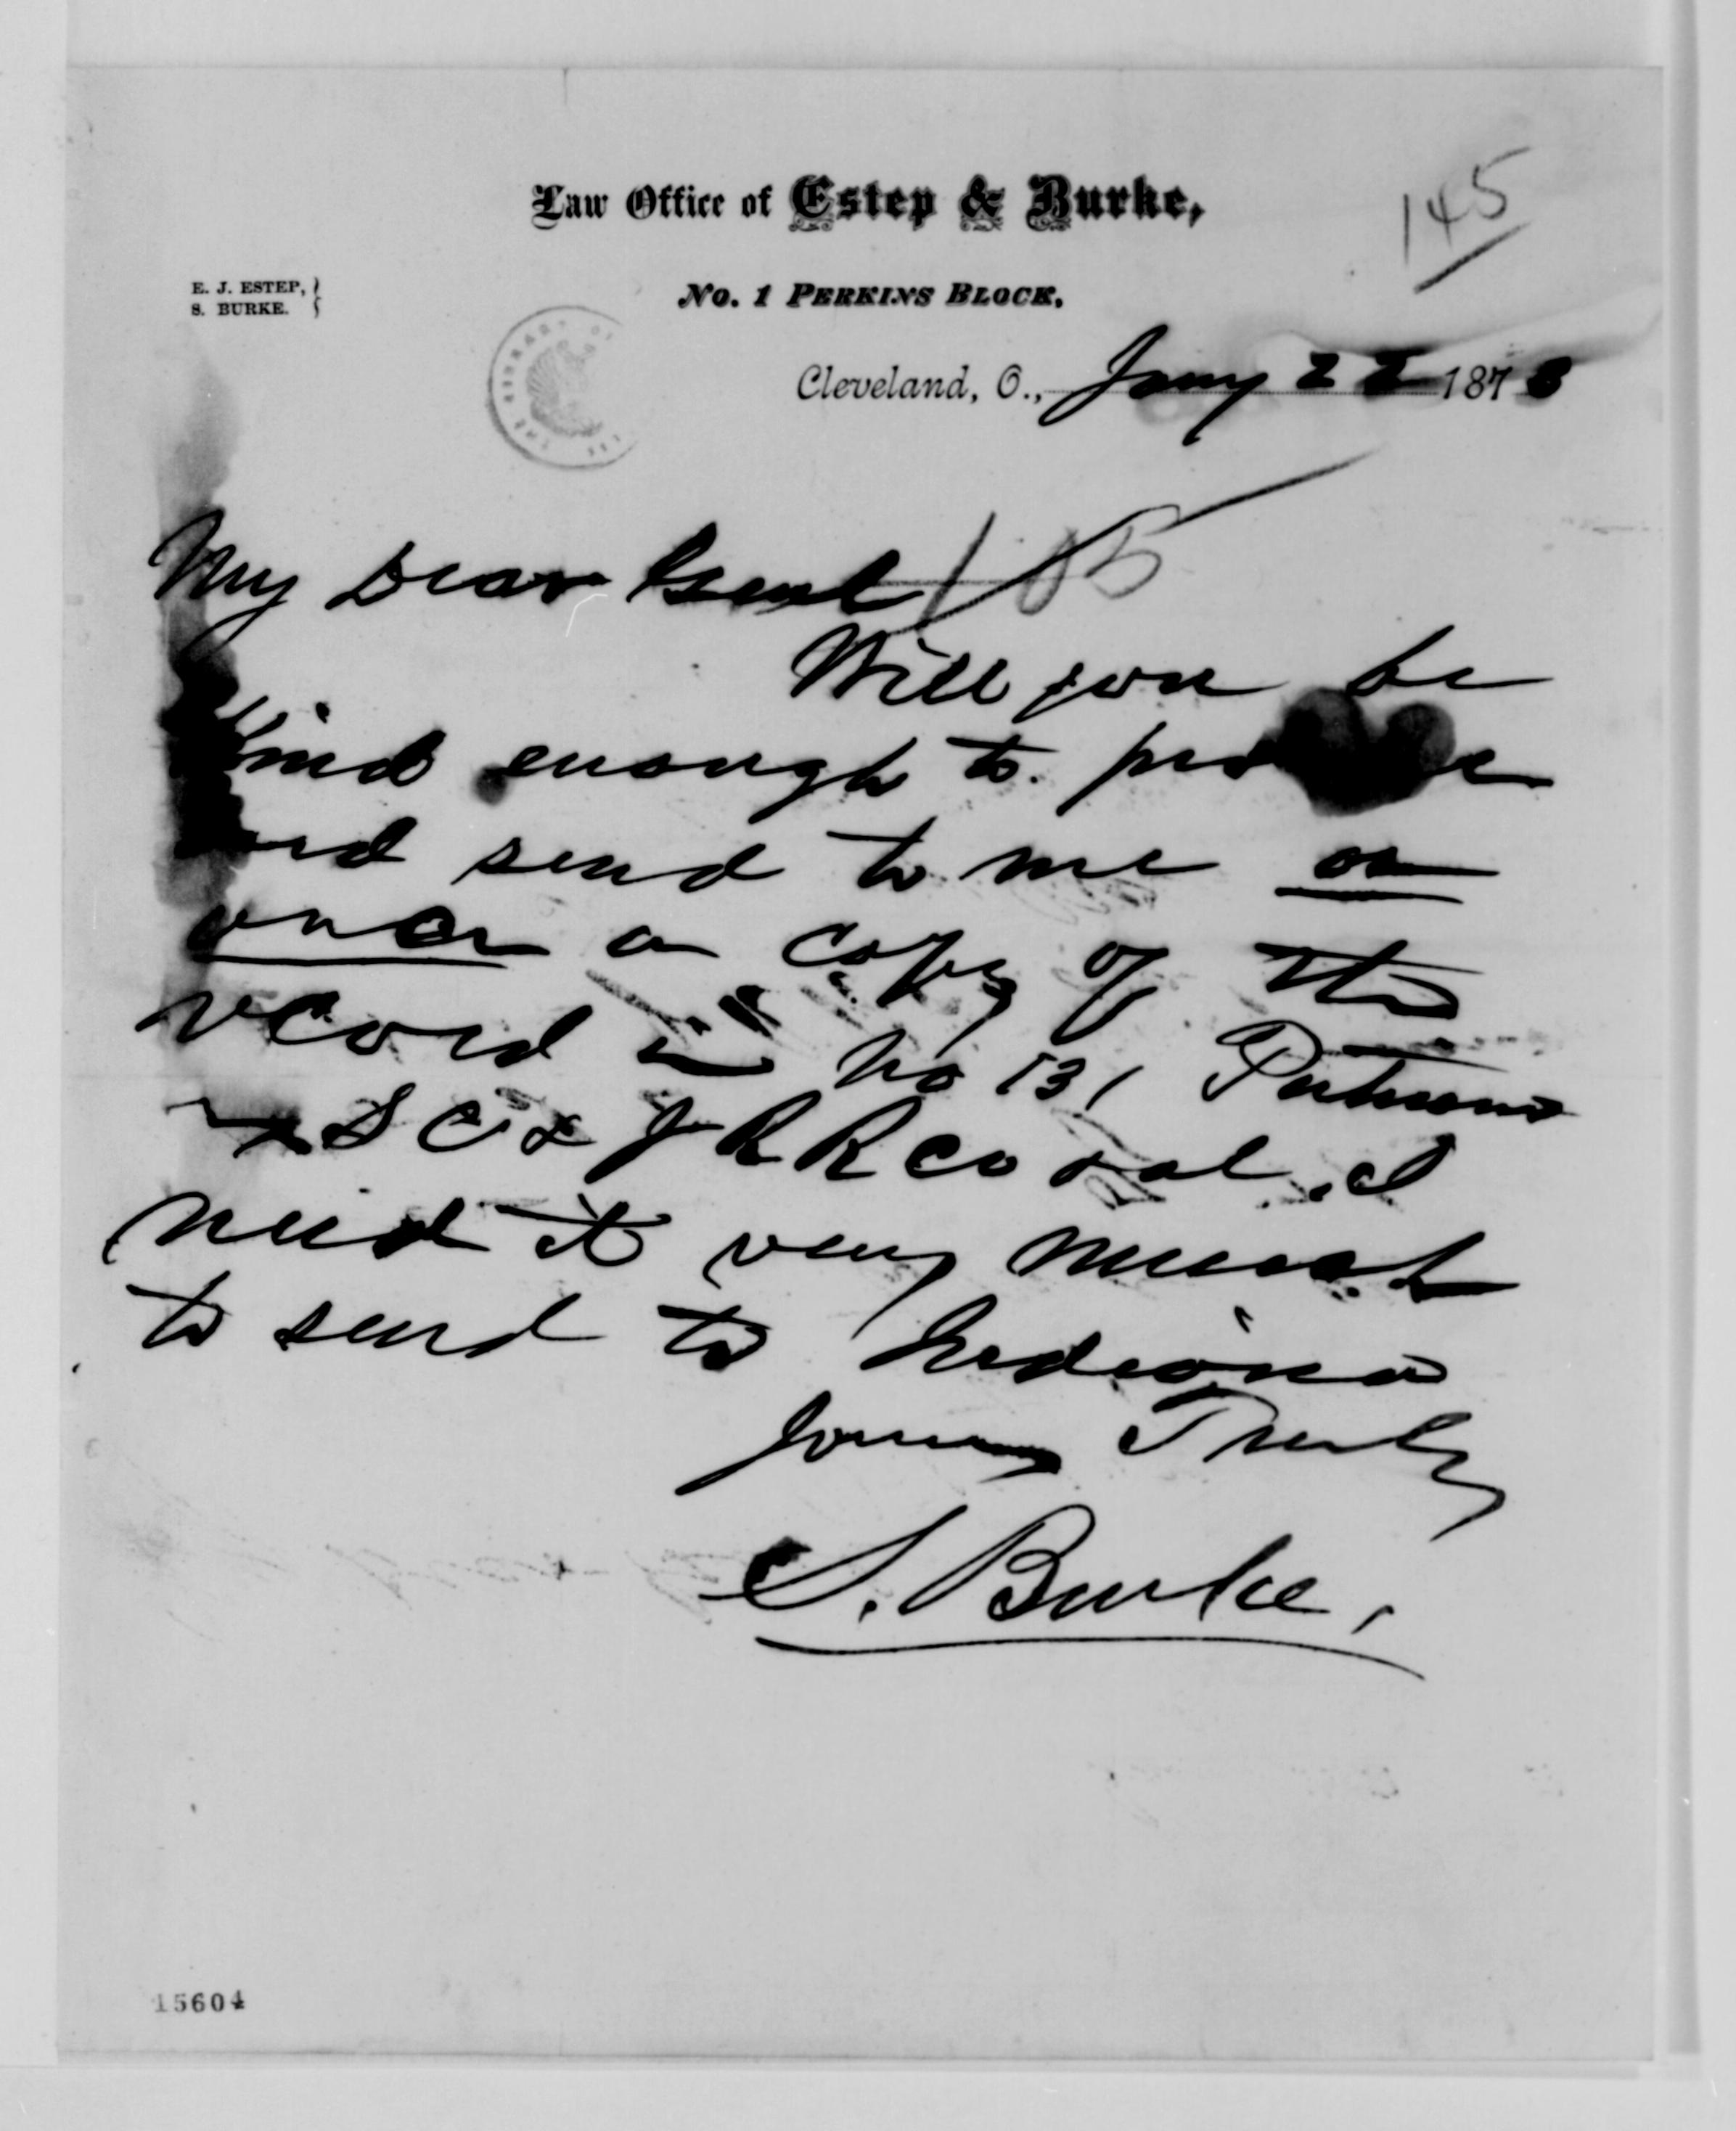 145
Law Office of Estep & Burke,
E. J. ESTEP,
S. BURKE.
No. 1 PERKINS BLOCK,
Cleveland, O., Jany 22 1873
My Dear Genl
105
Will you be
kind enough to
and send to me at
once a copy of the
record in No 131 Putnam
SC & J R R Co et al. I
need it very much
to send to Indiana
Yours Truly
S. Burke.
15604